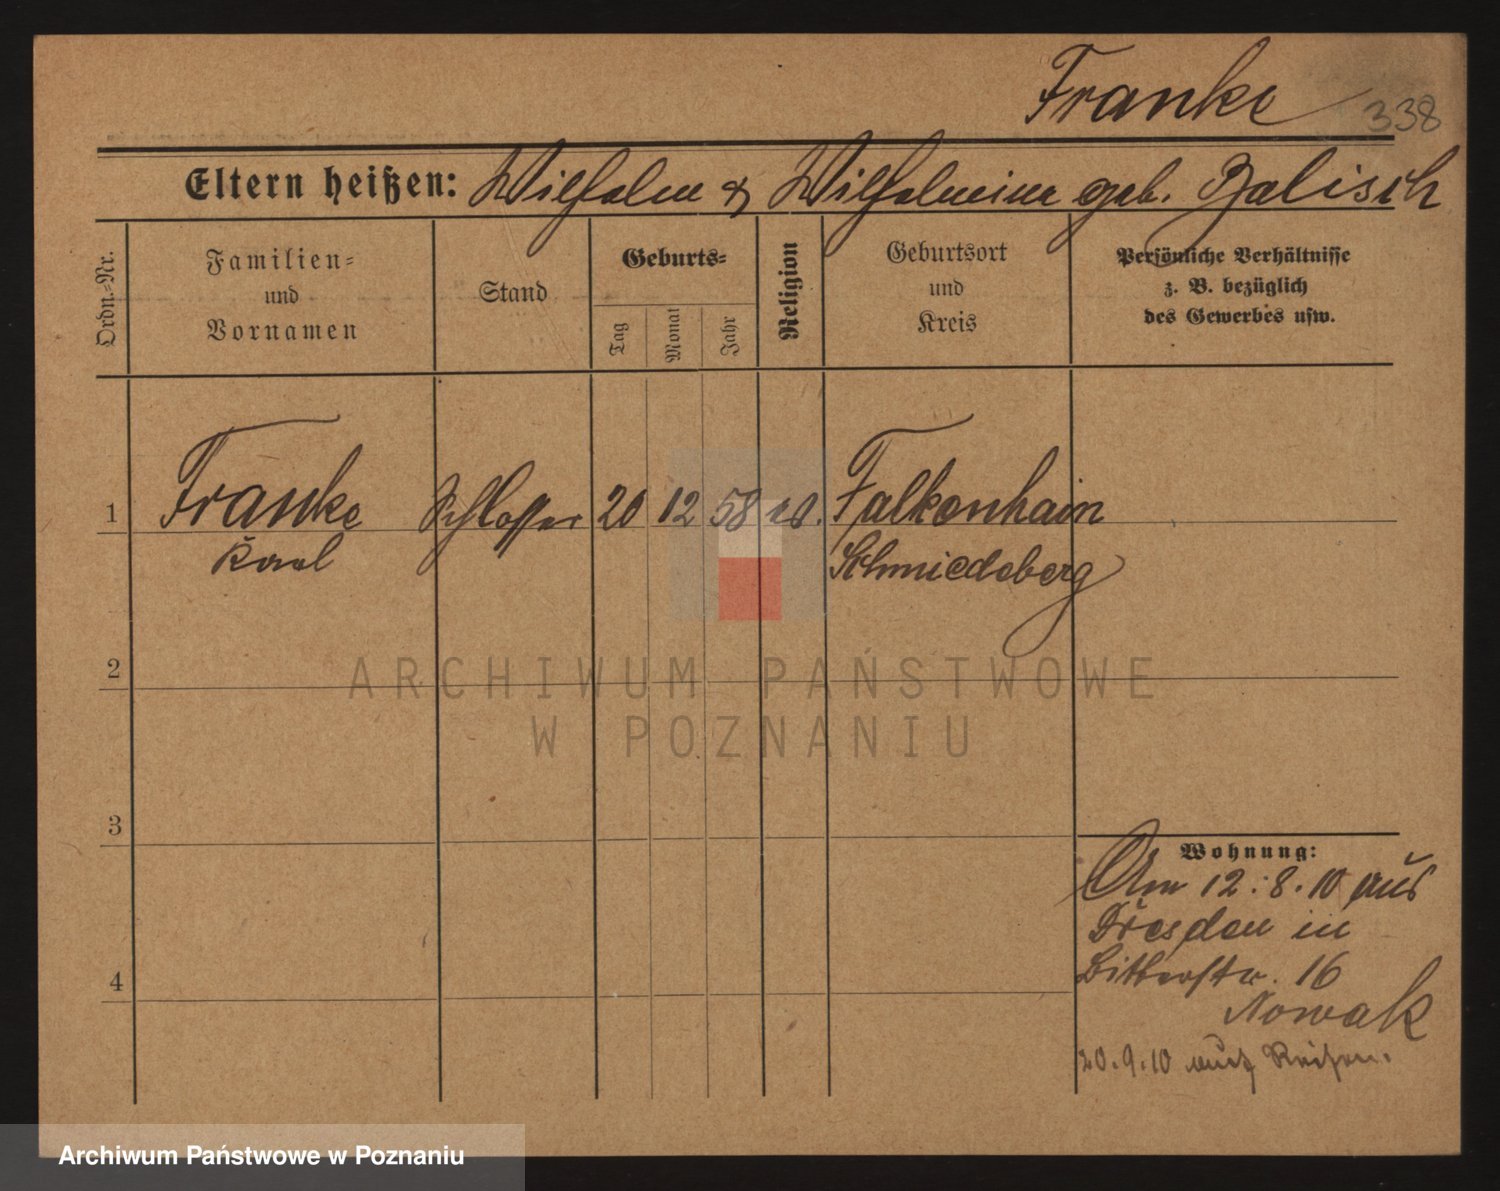 Franke
338
Eltern heißen: Wilhelm & Wilhelmine geb. Balisch
Ordn.-Nr.
Familien-
und
Vornamen
Stand
Geburts-
Tag
Monat
Jahr
Religion
Geburtsort
und
Kreis
Persönliche Verhältnisse
z. B. bezüglich
des Gewerbes usw.
1 Franke Schlosser 20 12 58 ev. Falkenhain
Karl Schmiedeberg
2
3
4
Wohnung:
Am 12.8.10 aus
Dresden in
16
Nowak
20.9.10 auf Reisen.
ARCHIWUM PAŃSTWOWE
W POZNANIU
Archiwum Państwowe w Poznaniu